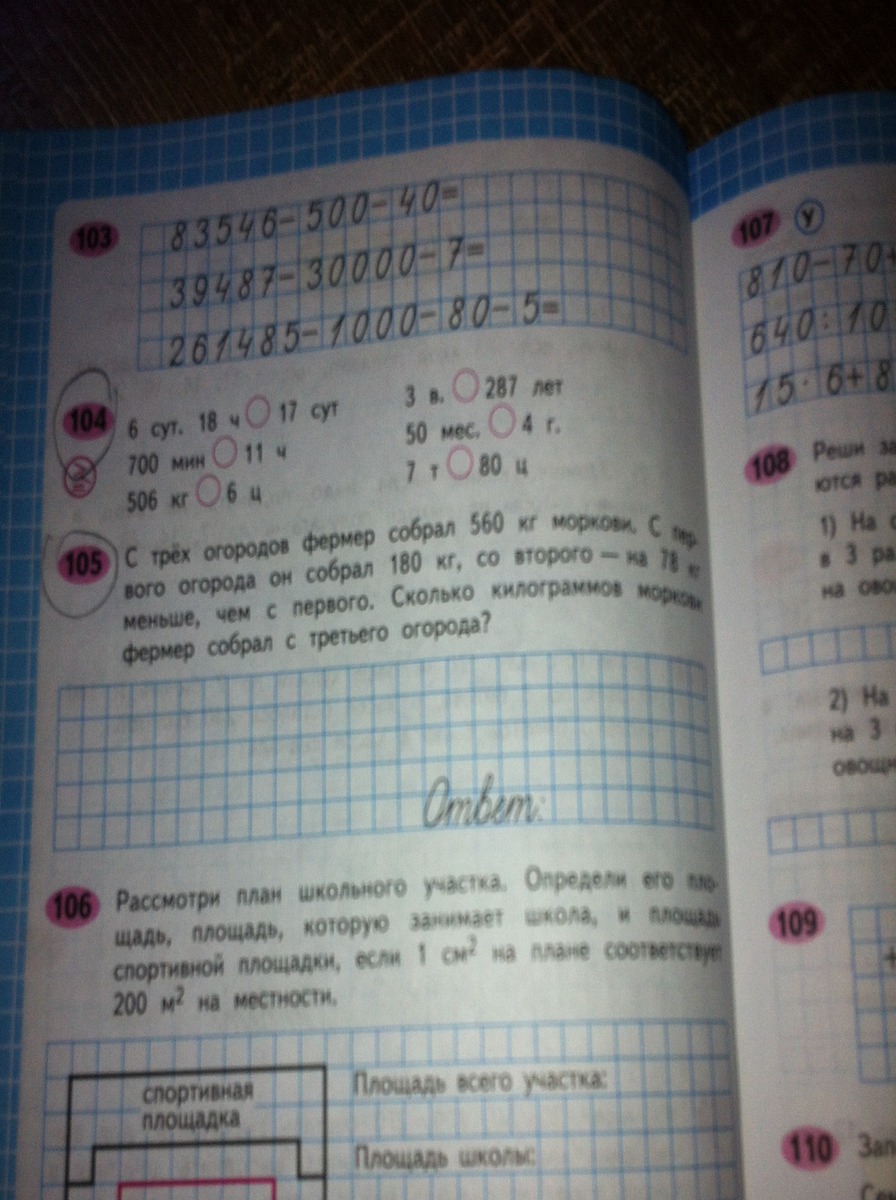 103
83546-500-40=
39487-30000-7=
261485-1000-80-5=
104
6 сут. 18 ч ○ 17 сут
700 мин ○ 11 ч
506 кг ○ 6 ц
3 в. ○ 287 лет
50 мес. ○ 4 г.
7 т ○ 80 ц
105
С трёх огородов фермер собрал 560 кг моркови. С пер-
вого огорода он собрал 180 кг, со второго — на 78 кг
меньше, чем с первого. Сколько килограммов моркови
фермер собрал с третьего огорода?
Ответ:
106
Рассмотри план школьного участка. Определи его пло-
щадь, площадь, которую занимает школа, и площадь
спортивной площадки, если 1 см² на плане соответствует
200 м² на местности.
спортивная
площадка
Площадь всего участка:
Площадь школы:
107 У
810-70+
640:10
15·6+8
108
Реши за
ются ра
1) На
в 3 ра
на ово
2) На
на 3
овощи
109
+
110
Зап